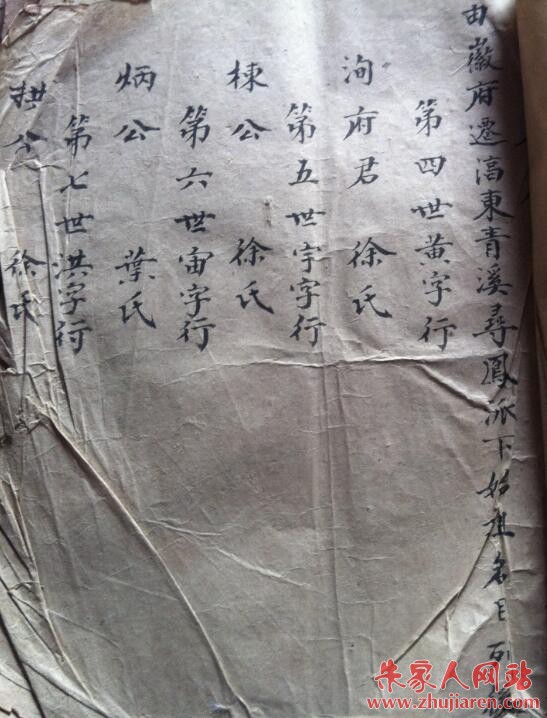 由徽府遷東青溪尋鳳派下始祖名目列後
第四世黄字行
洵府君 徐氏
第五世宇字行
棟公 徐氏
第六世宙字行
炳公 葉氏
第七世洪字行
拱公 徐氏
朱家人网站
www.zhujiaren.com